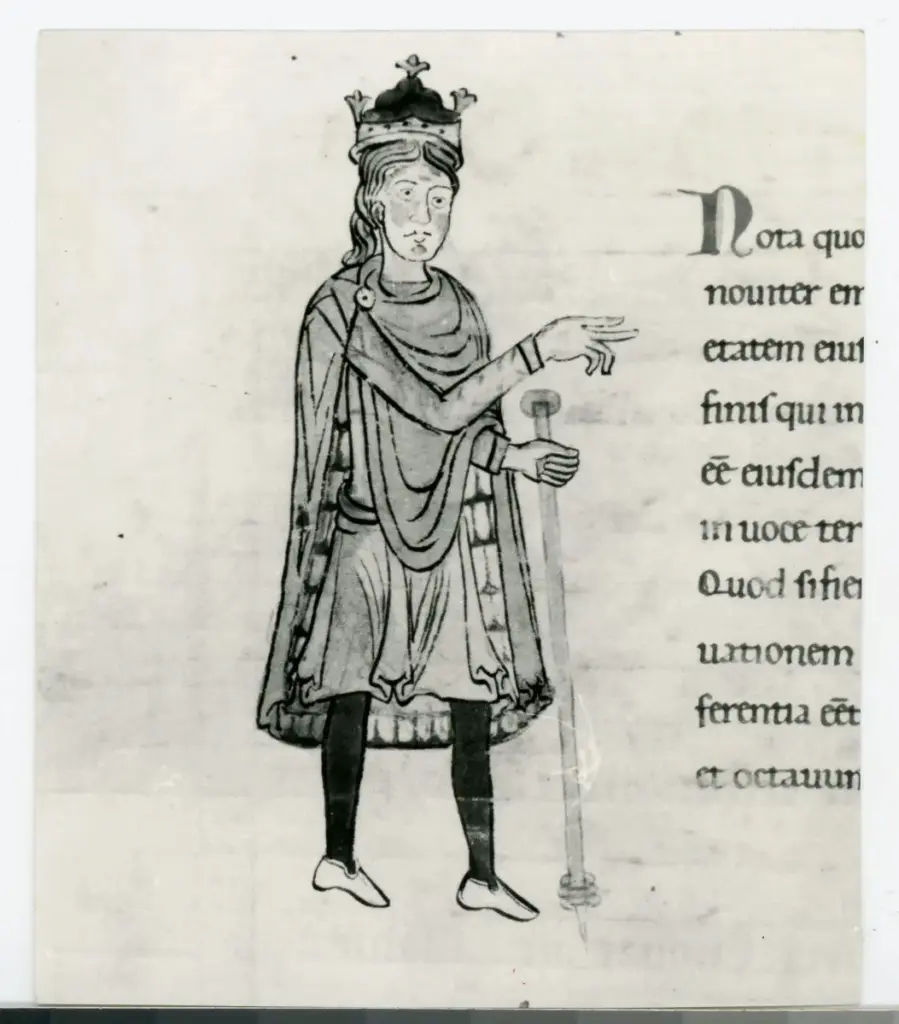 Nota quo
nouiter em
etatem eiuſ
finiſ qui in
eē eiuſdem
in uoce ter
Quod ſi fier
uationem
ferentia eēt
et octauum